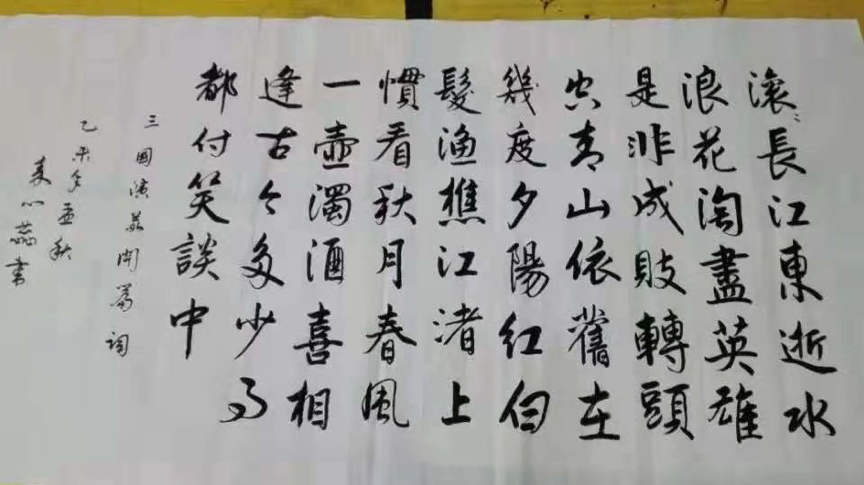 滾〻長江東逝水
浪花淘盡英雄
是非成敗轉頭
空青山依舊在
幾度夕陽紅白
髮渔樵江渚上
慣看秋月春風
一壺濁酒喜相
逢古今多少事
都付笑談中
三國演義開篇詞
乙未年孟秋
心蕊書